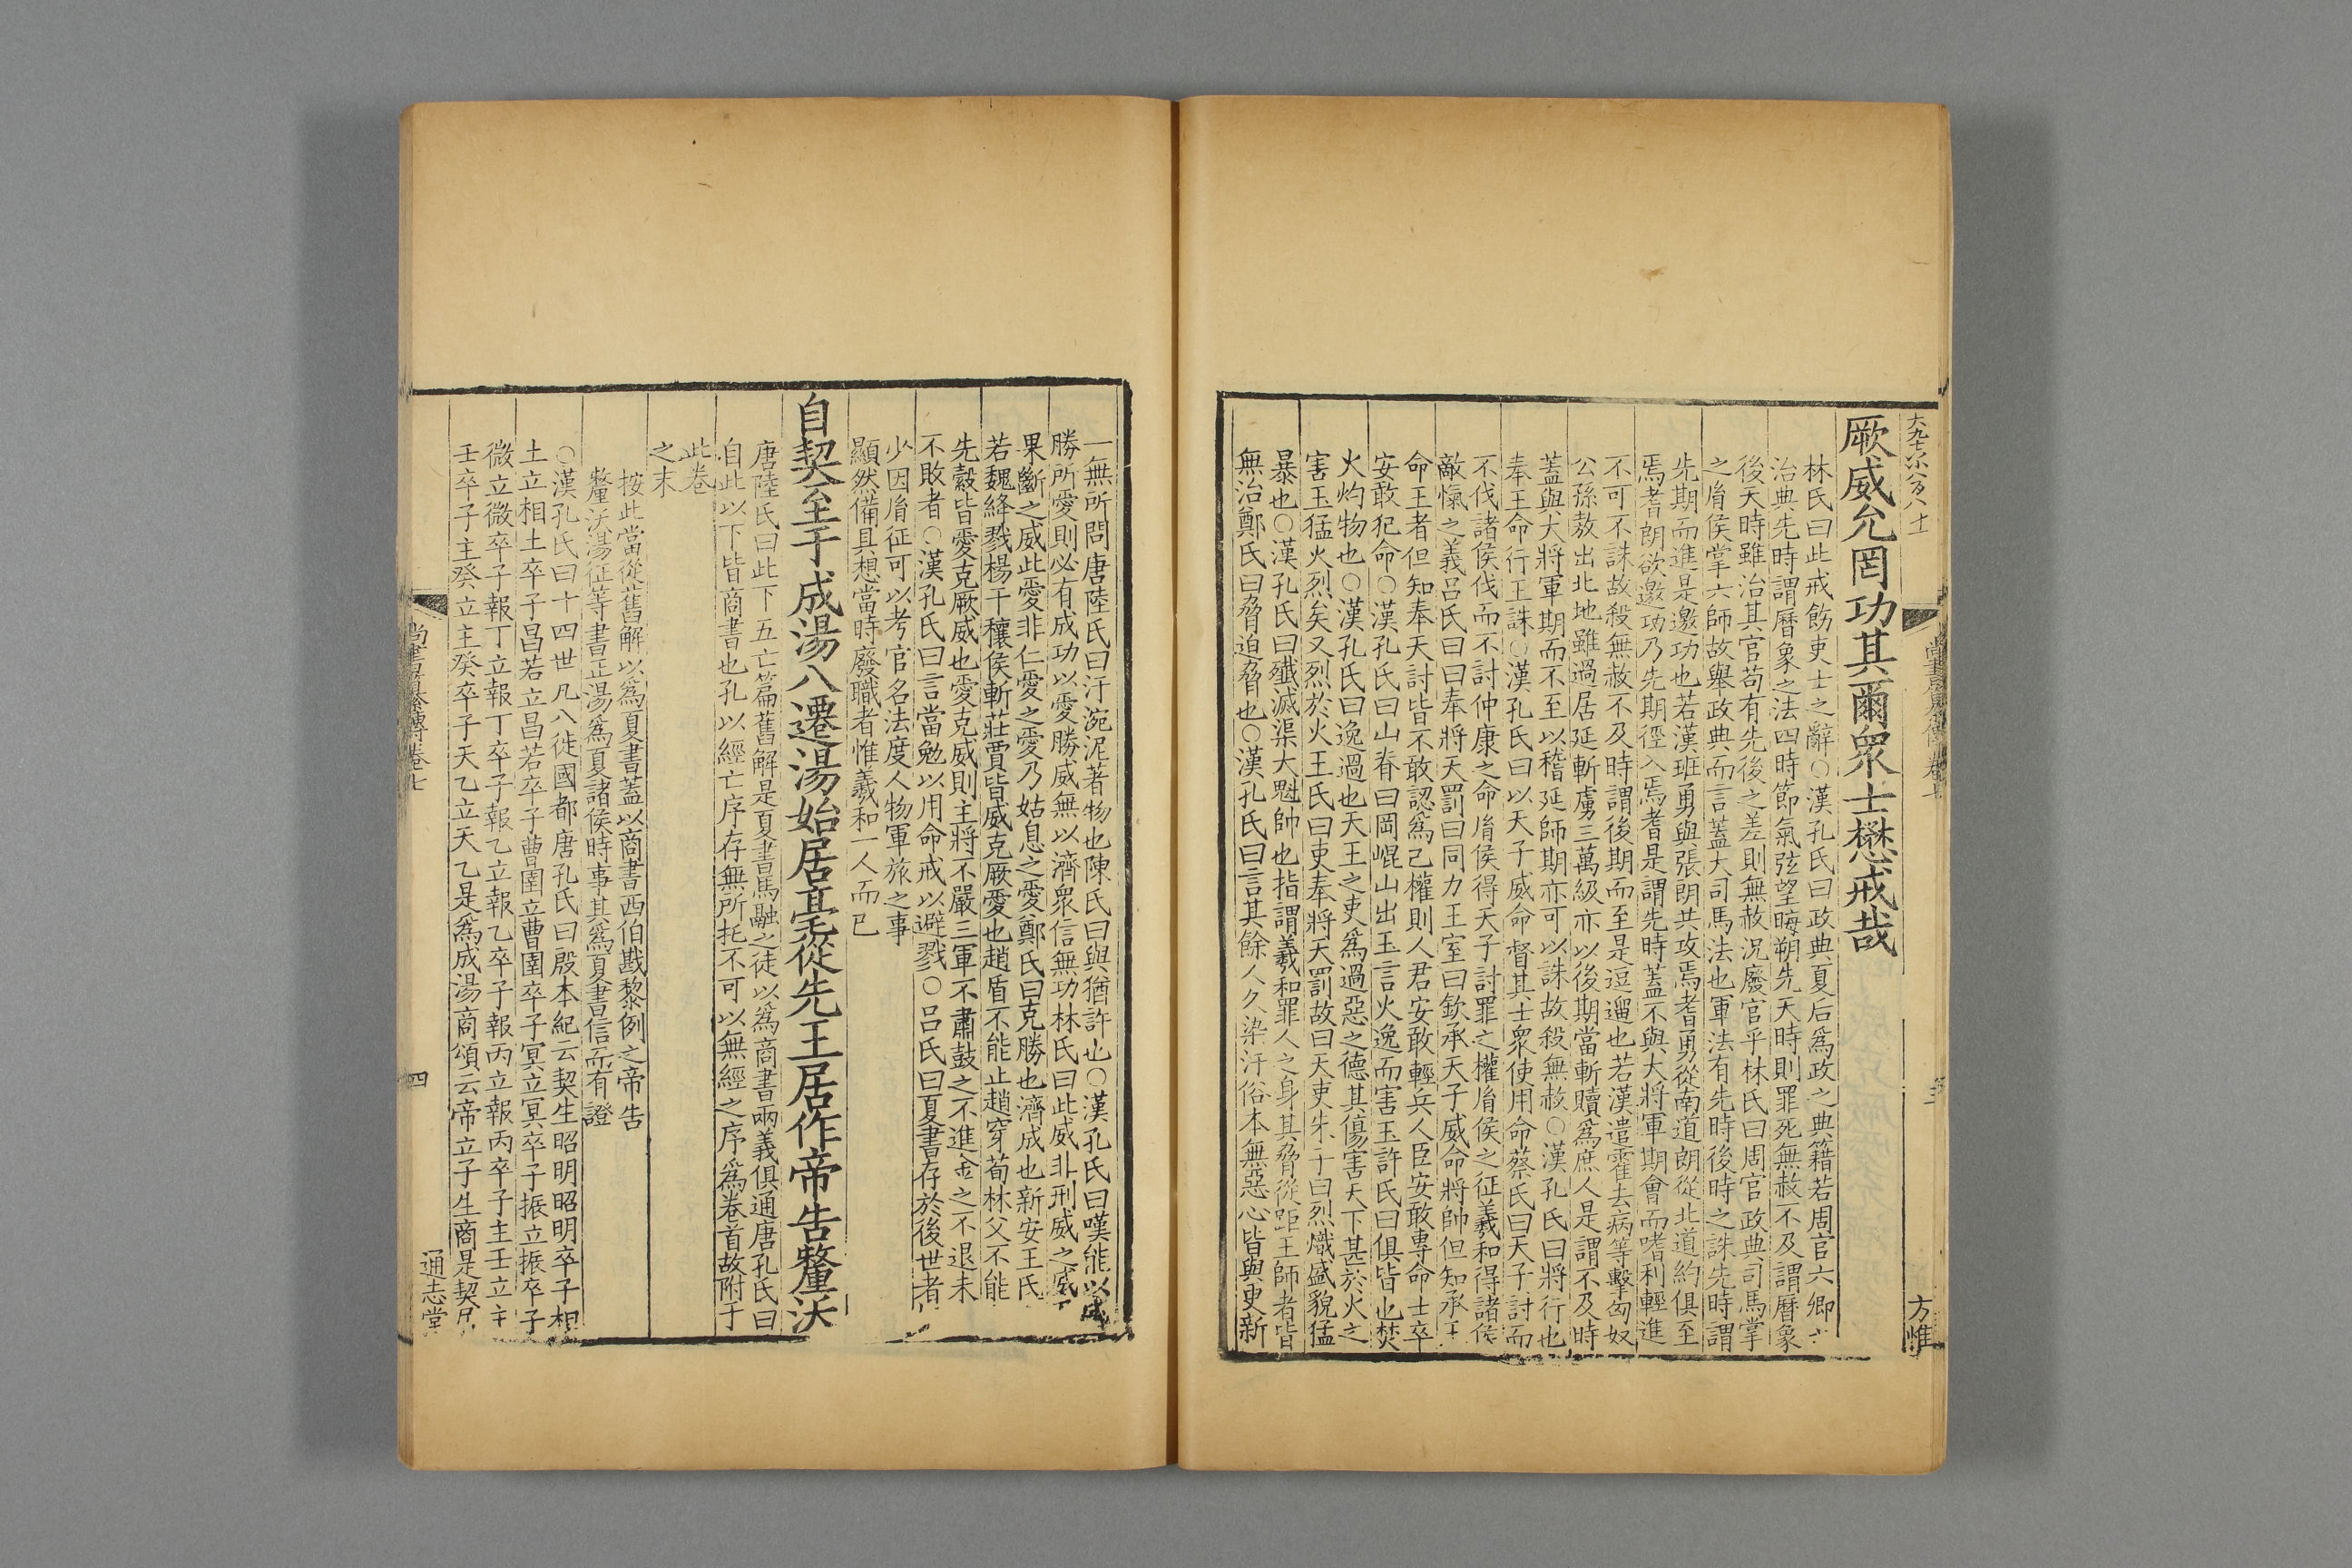 厥威允罔功其爾衆士懋戒哉
林氏曰此戒飭吏士之辭○漢孔氏曰政典夏后爲政之典籍若周官六卿
治典先時謂曆象之法四時節氣弦望晦朔先天時則罪死無赦不及謂曆象
後天時雖治其官苟有先後之差則無赦況廢官乎林氏曰周官政典司馬掌
之胤侯掌六師故舉政典而言蓋大司馬法也軍法有先時後時之誅先時謂
先期而進是邀功也若漢班勇與張朗共攻焉耆勇從南道朗從北道約俱至
焉耆朗欲邀功乃先期徑入焉耆是謂先時蓋不與大將軍期會而嗜利輕進
不可不誅故殺無赦不及時謂後期而至是逗遛也若漢遣霍去病等擊匈奴
公孫敖出北地雖過居延斬虜三萬級亦以後期當斬贖爲庶人是謂不及時
蓋與大將軍期而不至以稽延師期亦可以誅故殺無赦○漢孔氏曰將行也
奉王命行王誅○漢孔氏曰以天子威命督其士衆使用命蔡氏曰天子討而
不伐諸侯伐而不討仲康之命胤侯得天子討罪之權胤侯之征羲和得諸侯
敵愾之義呂氏曰曰奉將天罰曰同力王室曰欽承天子威命將帥但知承王
命王者但知奉天討皆不敢認爲己權則人君安敢輕兵人臣安敢專命士卒
安敢犯命○漢孔氏曰山脊曰岡崐山出玉言火逸而害玉許氏曰俱皆也焚
火灼物也○漢孔氏曰逸過也天王之吏爲過惡之德其傷害天下甚於火之
害玉猛火烈矣又烈於火王氏曰吏奉將天罰故曰天吏朱子曰烈熾盛貌猛
暴也○漢孔氏曰殲滅渠大魁帥也指謂羲和罪人之身其脅從距王師者皆
無治鄭氏曰脅迫脅也○漢孔氏曰言其餘人久染汙俗本無惡心皆與更新
尚書纂傳卷七
方惟
一無所問唐陸氏曰汙涴泥著物也陳氏曰與猶許也○漢孔氏曰嘆能以威
勝所愛則必有成功以愛勝威無以濟衆信無功林氏曰此威非刑威之威
果斷之威此愛非仁愛之愛乃姑息之愛鄭氏曰克勝也濟成也新安王氏
若魏絳戮楊干穰侯斬莊賈皆威克厥愛也趙盾不能止趙穿荀林父不能
先縠皆愛克厥威也愛克威則主將不嚴三軍不肅鼓之不進金之不退未
不敗者○漢孔氏曰言當勉以用命戒以避戮○呂氏曰夏書存於後世者
少因胤征可以考官名法度人物軍旅之事
顯然備具想當時廢職者惟羲和一人而已
自契至于成湯八遷湯始居亳從先王居作帝告釐沃
唐陸氏曰此下五亡篇舊解是夏書馬融之徒以爲商書兩義俱通唐孔氏曰
自此以下皆商書也孔以經亡序存無所托不可以無經之序爲卷首故附于
此卷
之末
按此當從舊解以爲夏書蓋以商書西伯戡黎例之帝告
釐沃湯征等書正湯爲夏諸侯時事其爲夏書信而有證
○漢孔氏曰十四世凡八徙國都唐孔氏曰殷本紀云契生昭明昭明卒子相
土立相土卒子昌若立昌若卒子曹圉立曹圉卒子冥立冥卒子振立振卒子
微立微卒子報丁立報丁卒子報乙立報乙卒子報丙立報丙卒子主壬立主
壬卒子主癸立主癸卒子天乙立天乙是爲成湯商頌云帝立子生商是契居
尚書纂傳卷七
四
通志堂